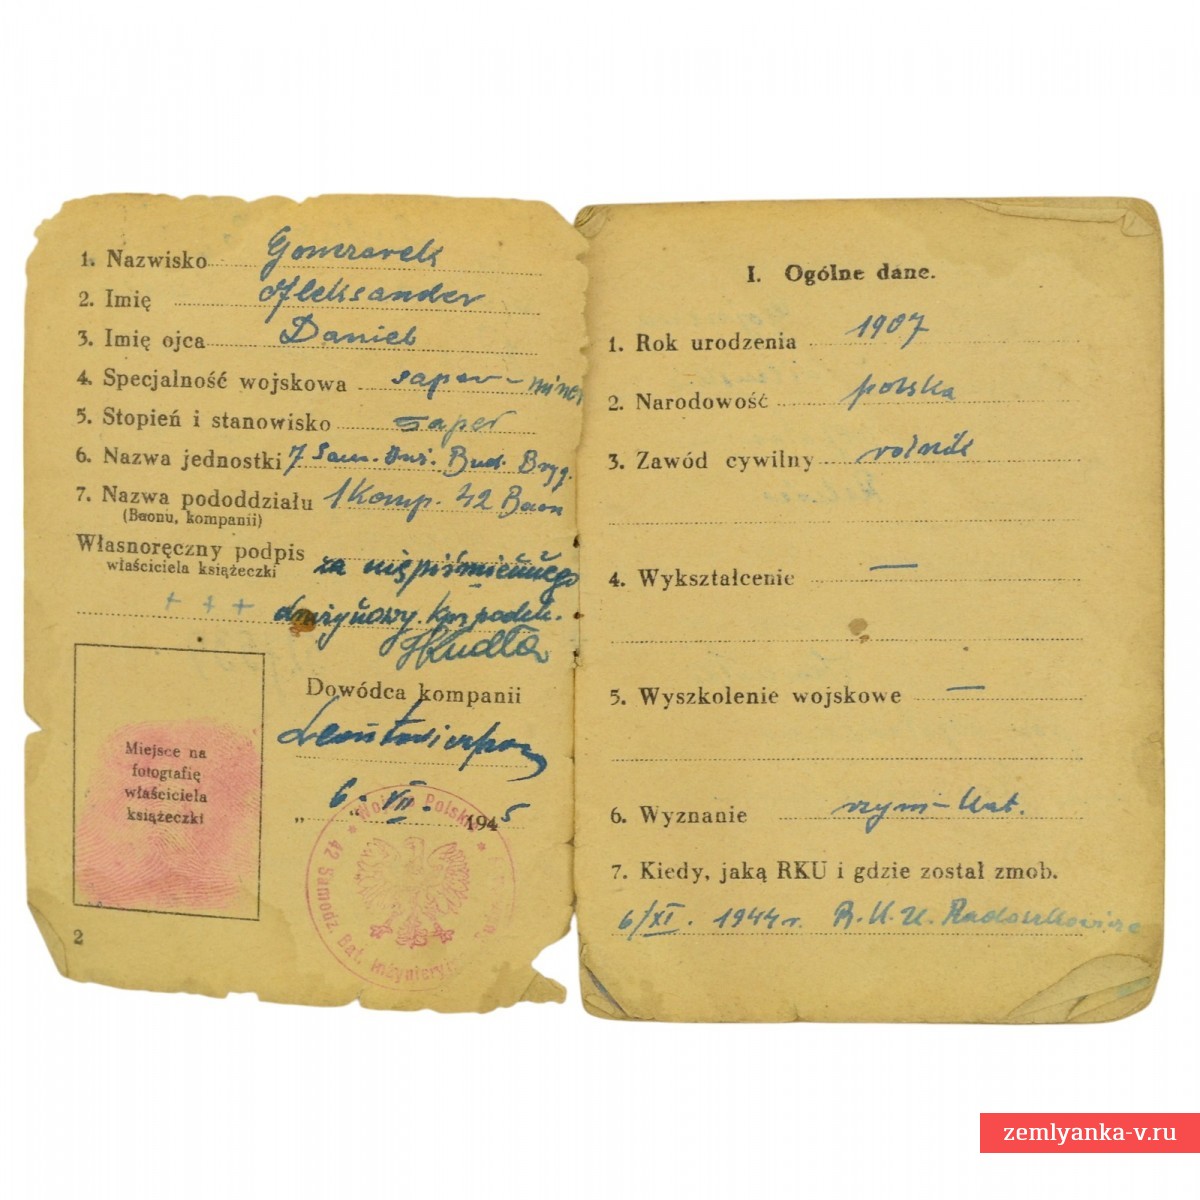 1. Nazwisko Gonczarek
2. Imię Aleksander
3. Imię ojca Daniel
4. Specjalność wojskowa saper-miner
5. Stopień i stanowisko saper
6. Nazwa jednostki 7 Sam. Inż. Bud. Bryg.
7. Nazwa pododdziału 1 Komp. 42 Baon
(Baonu, kompanii)
Własnoręczny podpis
właściciela książeczki
za niepiśmiennego
+ + + drużynowy
HKudła
Dowódca kompanii
Miejsce na
fotografię
właściciela
książeczki
„6.„ VII. 1945
* Wojsko Polskie *
42 Samodz. Bat. Inżynieryj
2
I. Ogólne dane.
1. Rok urodzenia 1907
2. Narodowość polska
3. Zawód cywilny rolnik
4. Wykształcenie —
5. Wyszkolenie wojskowe —
6. Wyznanie rzym-kat.
7. Kiedy, jaką RKU i gdzie został zmob.
6/XI. 1944 r. R.K.U. Radoszkowicze
zemlyanka-v.ru